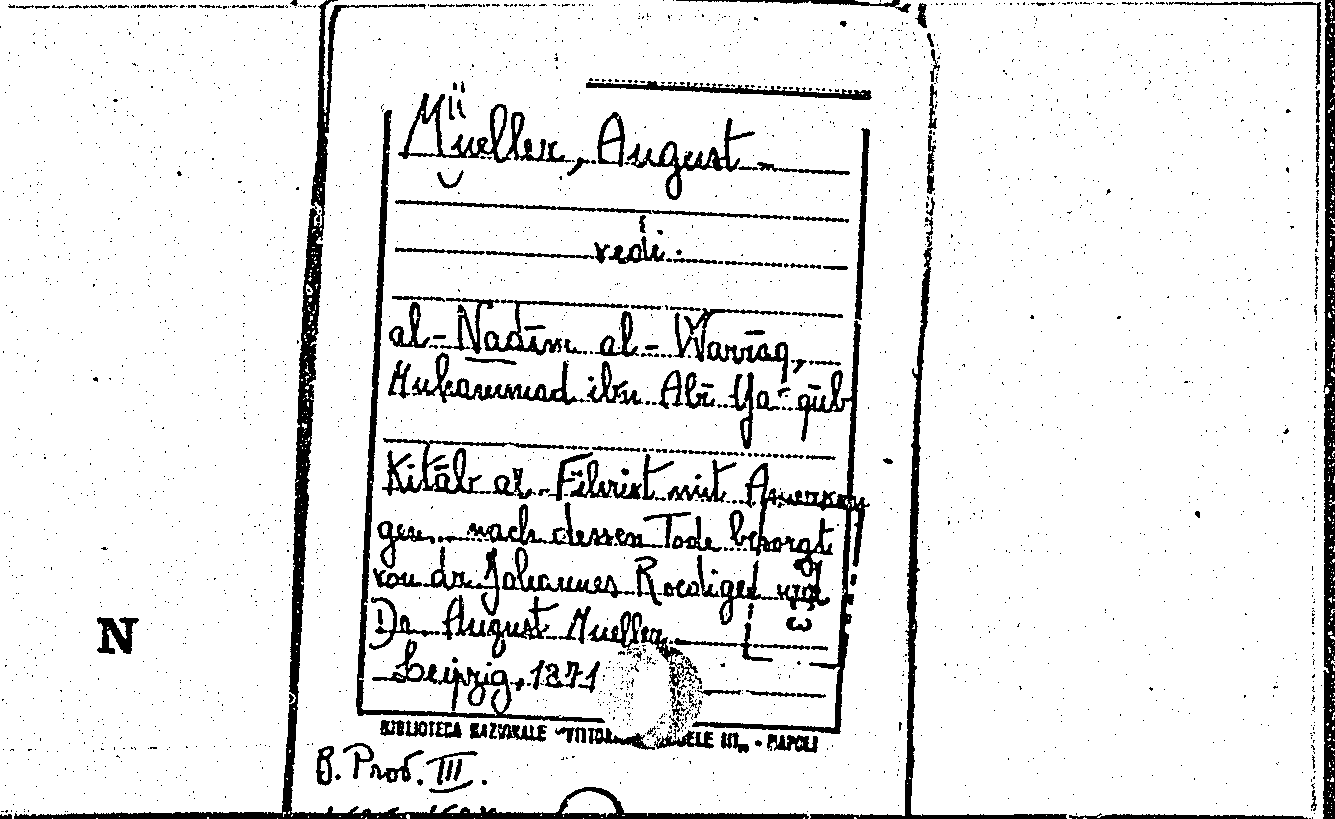 Mueller, August
vedi.
al-Nadīm al-Warrāq,
Muhammad ibn Abī Ya‘qūb
Kitāb al-Fihrist mit Anmerkun
gen... nach dessen Tode besorgt
von dr. Johannes Roediger und
Dr. August Mueller.
Leipzig, 1871
BIBLIOTECA NAZIONALE - NAPOLI
N
B. Prov. III.